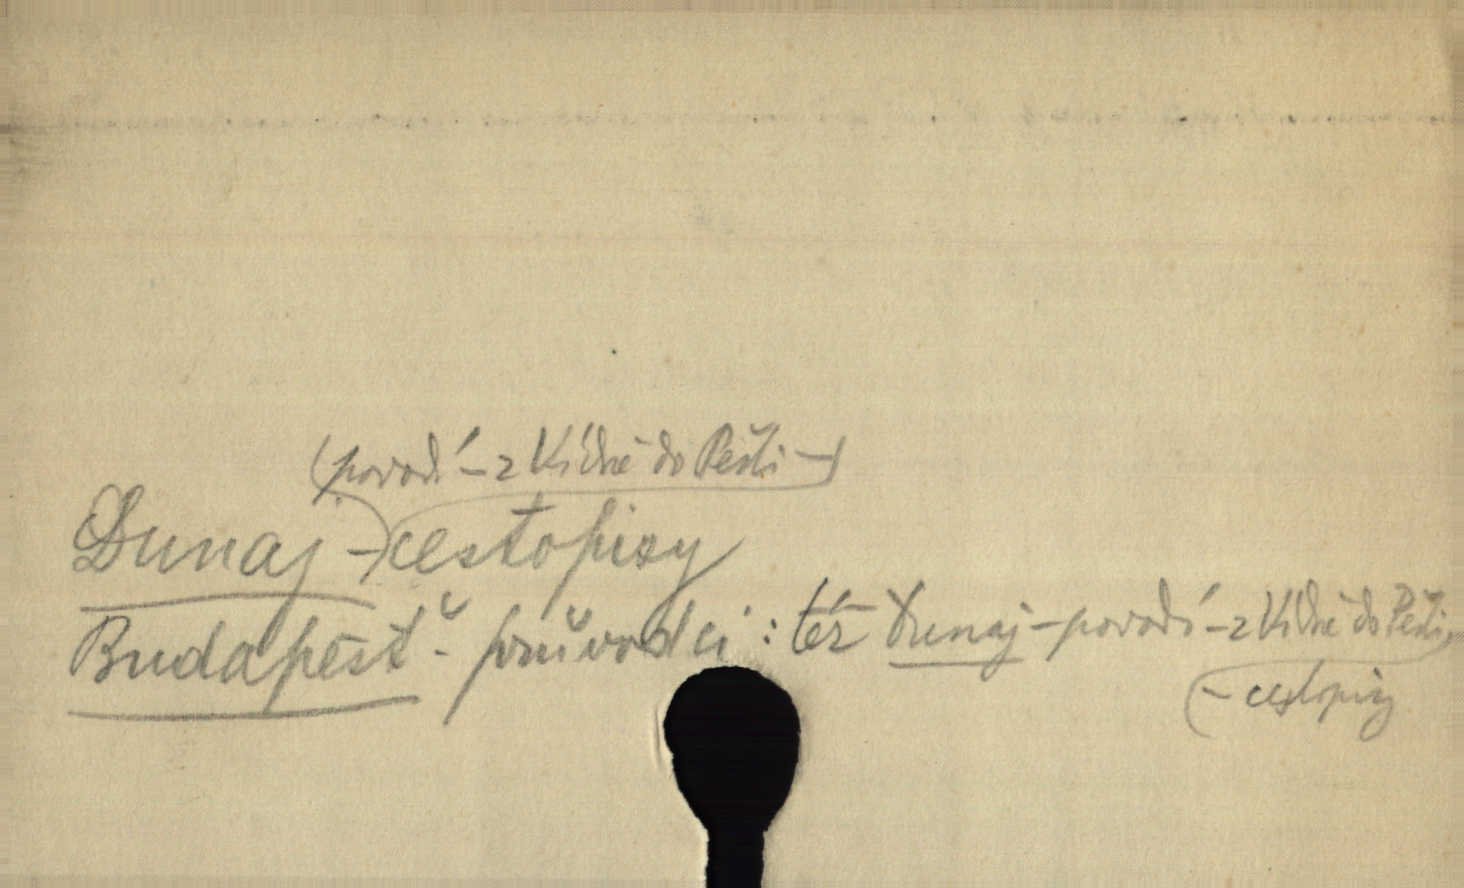 (povodí – z Vídně do Pešti –)
Dunaj – cestopisy
Budapešť - průvodci : též Dunaj – povodí – z Vídně do Pešti,
– cestopisy